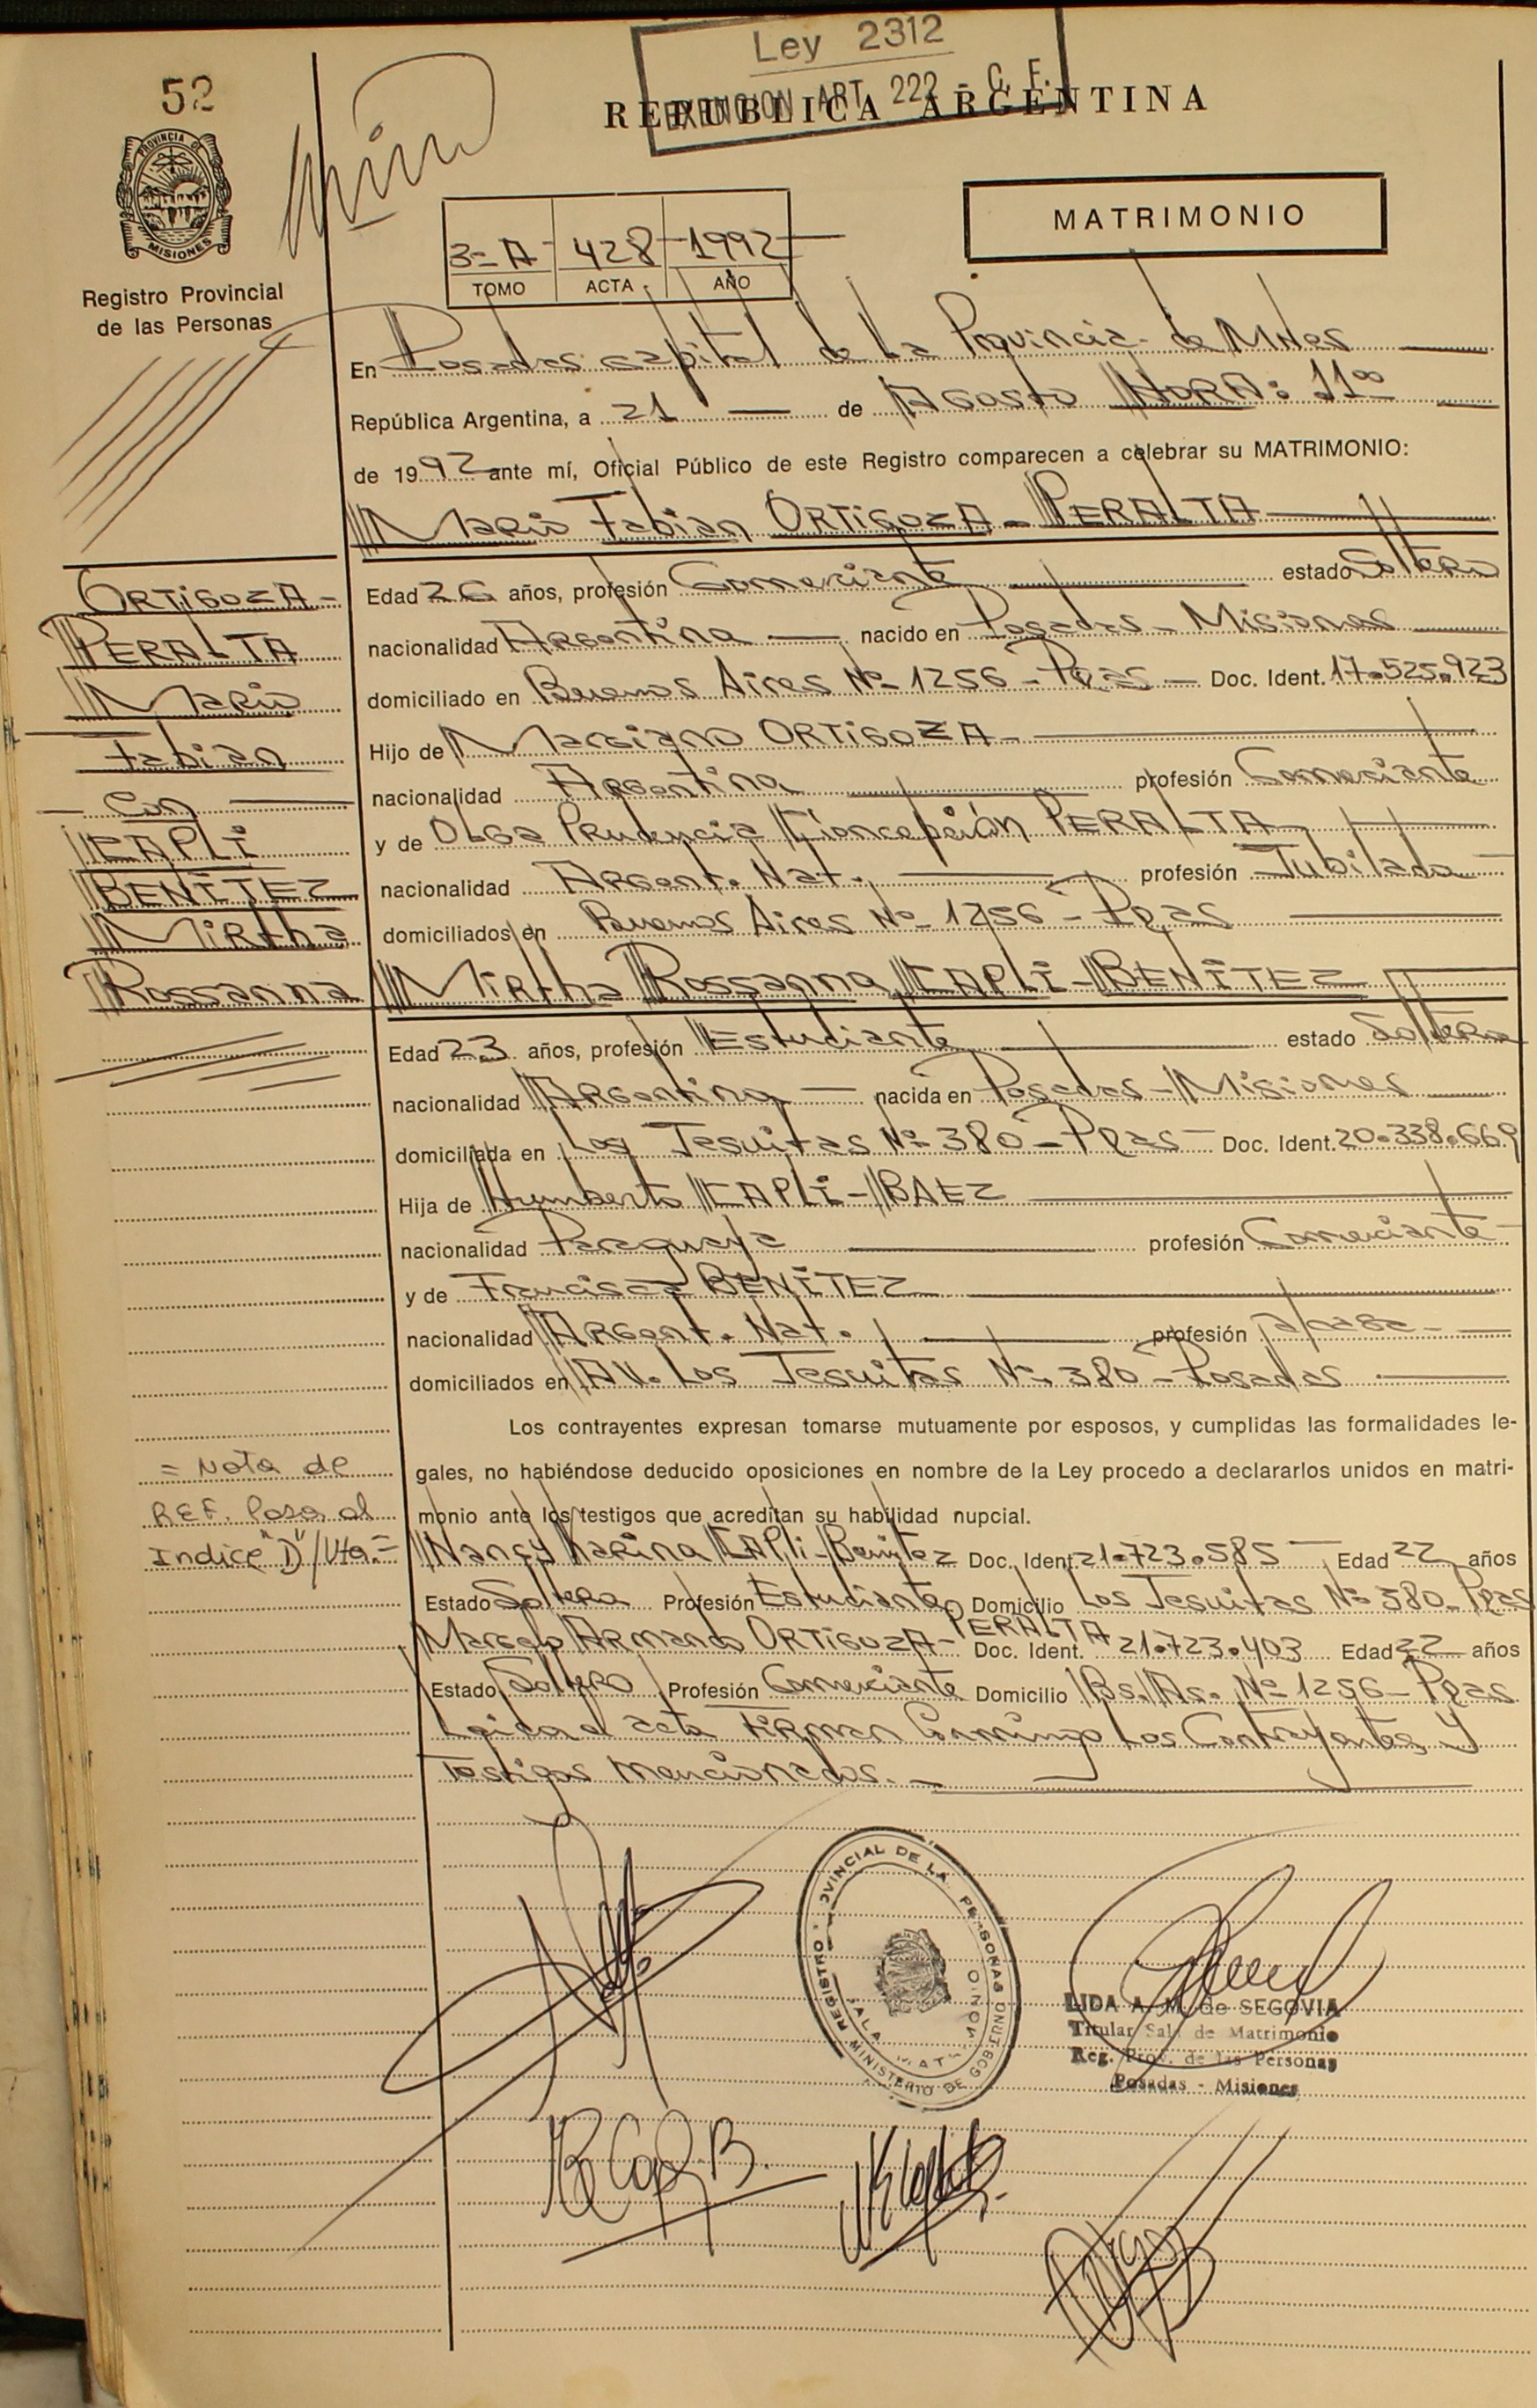 Ley 2312
EXENCION ART. 222 - C. F.
52
REPUBLICA ARGENTINA
PROVINCIA DE
MISIONES
MATRIMONIO
3-A 428 1992
TOMO ACTA AÑO
Registro Provincial
de las Personas
En Posadas capital de La Provincia de Mnes
República Argentina, a 21 de Agosto HORA: 11°°
de 1992 ante mí, Oficial Público de este Registro comparecen a celebrar su MATRIMONIO:
Mario Fabian ORTIGOZA - PERALTA
ORTIGOZA -
PERALTA
Mario
Fabian
Con
CAPLI
BENITEZ
Mirtha
Rossanna
Edad 26 años, profesión Comerciante estado Soltero
nacionalidad Argentina nacido en Posadas - Misiones
domiciliado en Buenos Aires Nº 1256 - Pdas - Doc. Ident. 17.525.923
Hijo de Marciano ORTIGOZA -
nacionalidad Argentina profesión Comerciante
y de Olga Prudencia Concepción PERALTA
nacionalidad Argent. Nat. profesión Jubilada
domiciliados en Buenos Aires Nº 1256 - Pdas
Mirtha Rossanna CAPLI - BENITEZ
Edad 23 años, profesión Estudiante estado Soltera
nacionalidad Argentina nacida en Posadas - Misiones
domiciliada en Los Jesuitas Nº 380 - Pdas - Doc. Ident. 20.338.669
Hija de Humberto CAPLI - BAEZ
nacionalidad Paraguaya profesión Comerciante -
y de Francisca BENITEZ
nacionalidad Argent. Nat. profesión a/casa -
domiciliados en AV. Los Jesuitas Nº 380 - Posadas
Los contrayentes expresan tomarse mutuamente por esposos, y cumplidas las formalidades le-
gales, no habiéndose deducido oposiciones en nombre de la Ley procedo a declararlos unidos en matri-
monio ante los testigos que acreditan su habilidad nupcial.
= Nota de
REF. Pasa al
Indice "D"/Vta. =
Nancy Karina CAPLI - Benitez Doc. Ident. 21.723.585 Edad 22 años
Estado Soltera Profesión Estudiante Domicilio Los Jesuitas Nº 380 - Pdas
Marcelo Armando ORTIGOZA - PERALTA Doc. Ident. 21.723.403 Edad 22 años
Estado Soltero Profesión Comerciante Domicilio Bs. As. Nº 1256 - Pdas.
Leida el acta Firman Conmigo Los Contrayentes y
Testigos mencionados. -
REGISTRO PROVINCIAL DE LAS PERSONAS
MINISTERIO DE GOBIERNO
SALA MATRIMONIO
LIDA A. M. de SEGOVIA
Titular Sala de Matrimonio
Reg. Prov. de las Personas
Posadas - Misiones